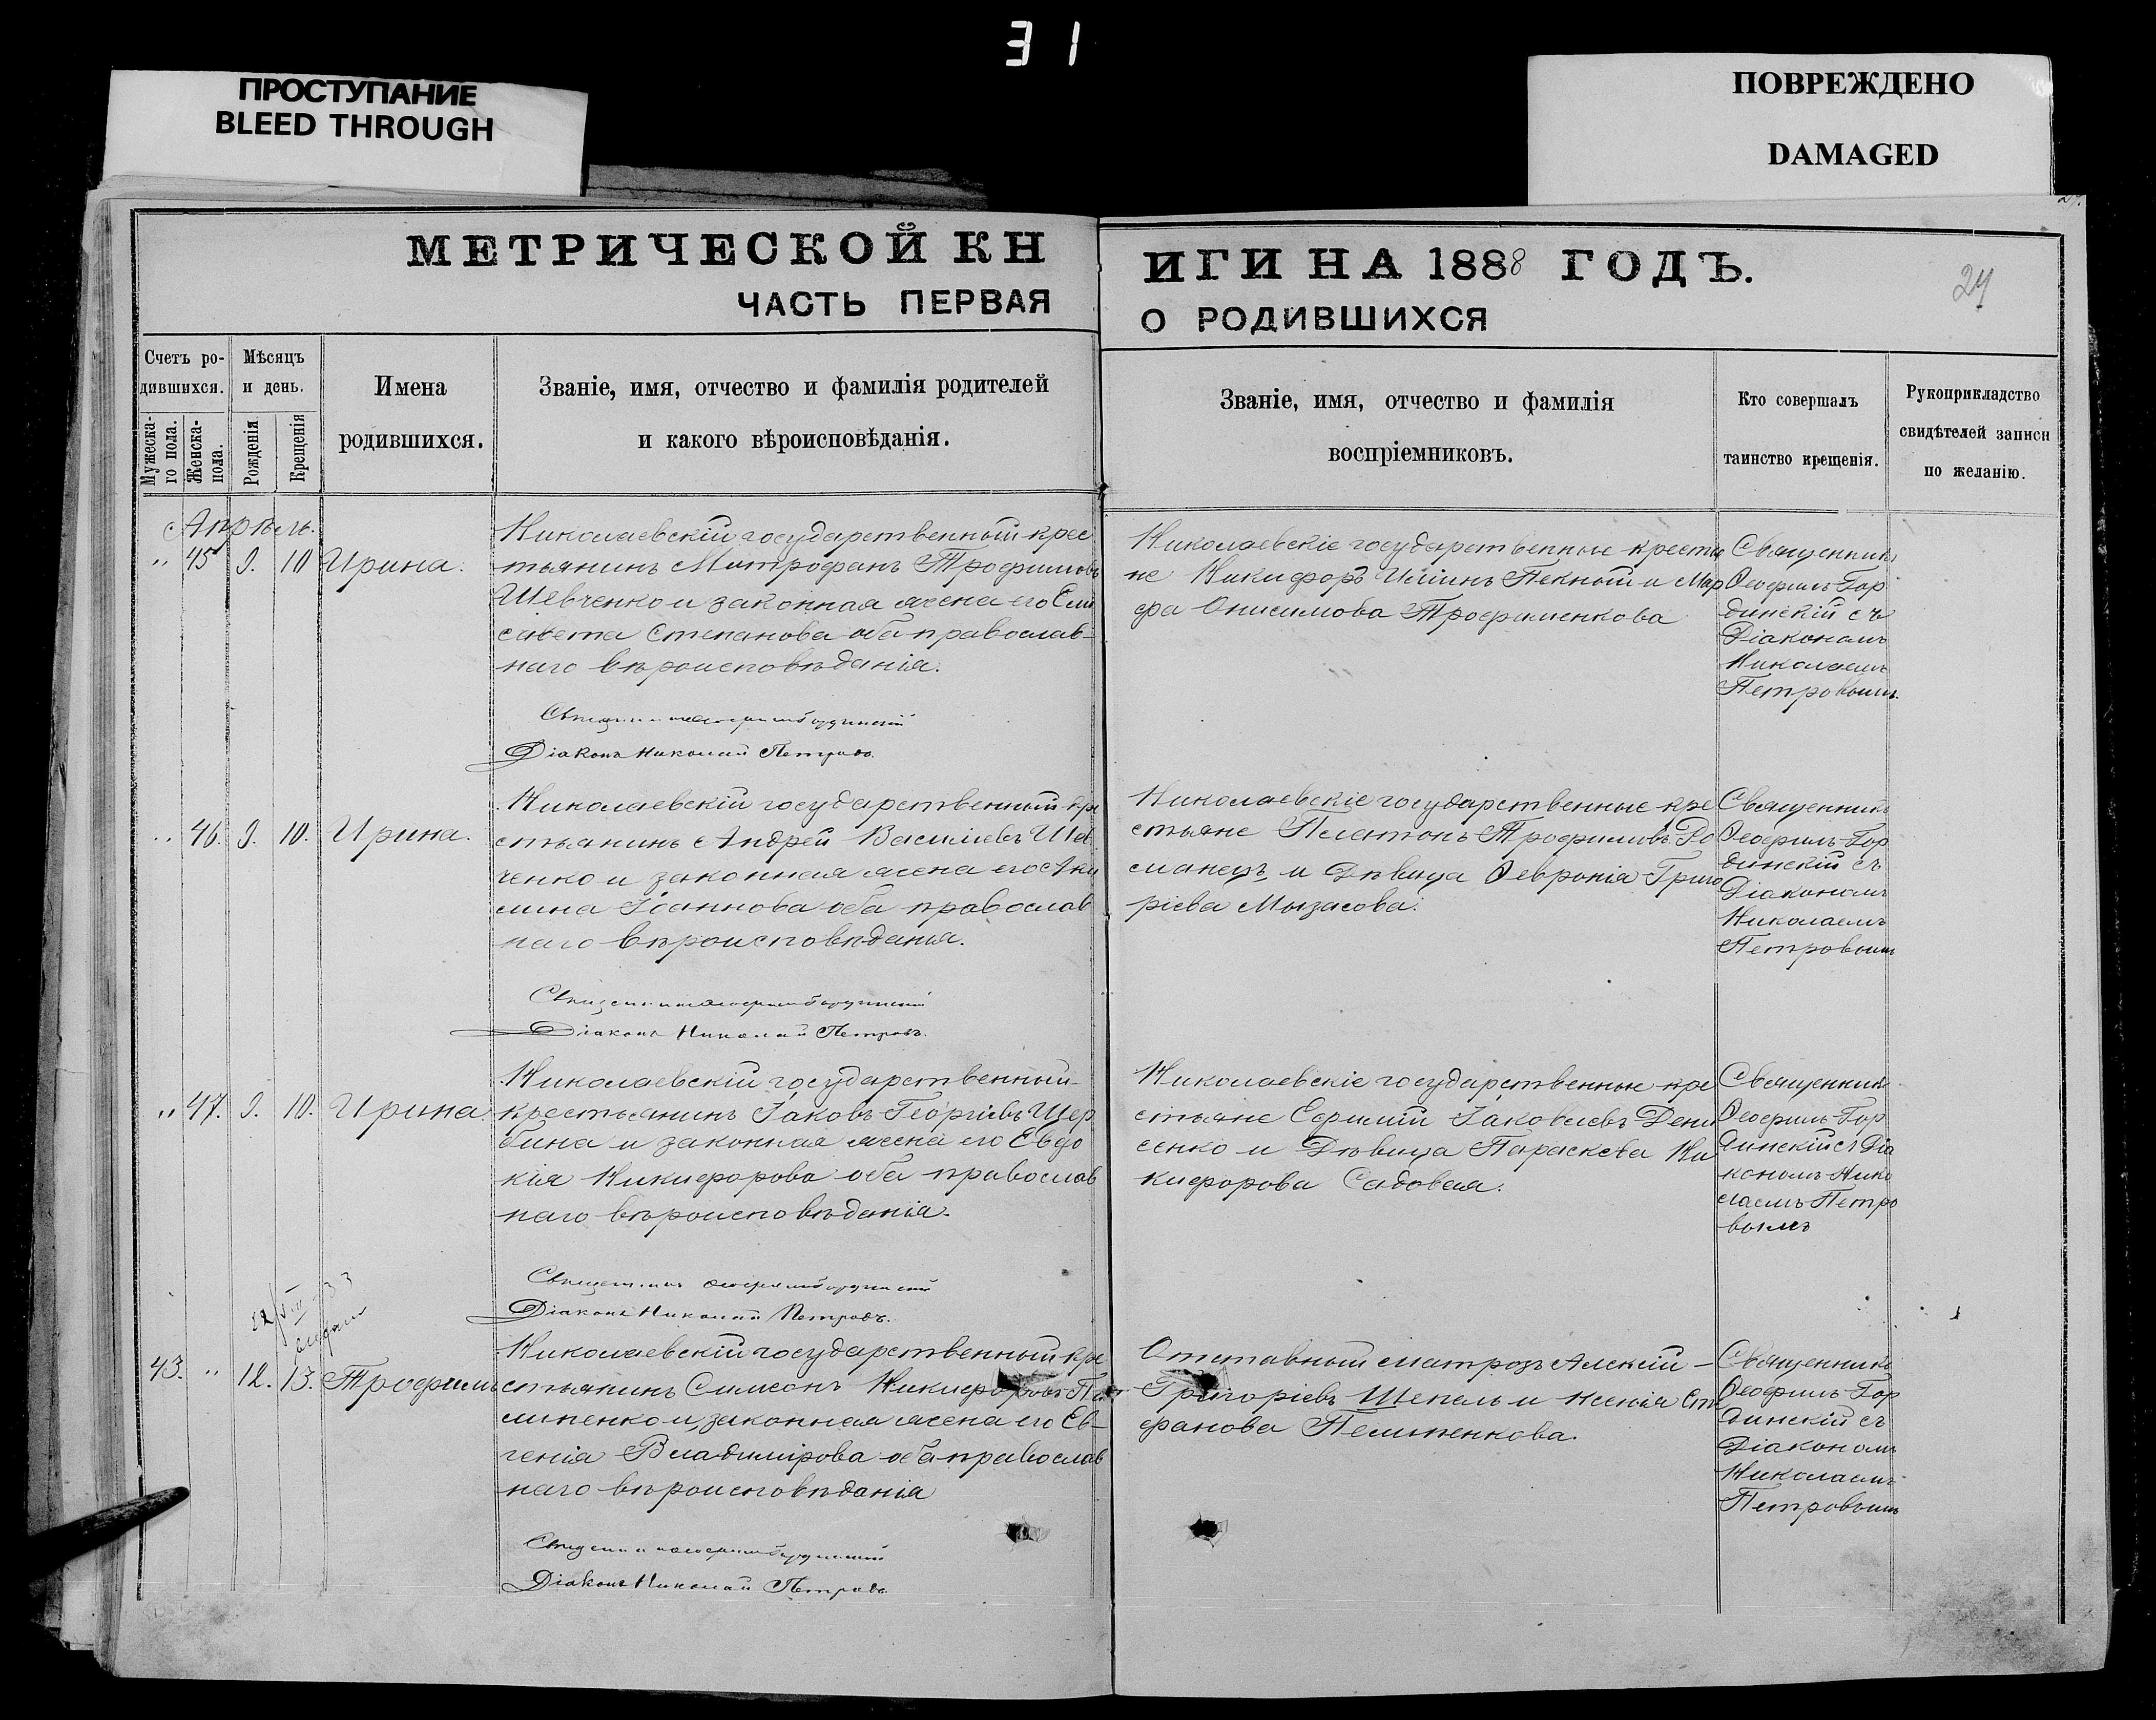 31
ПРОСТУПАНИЕ
BLEED THROUGH
ПОВРЕЖДЕНО
DAMAGED
МЕТРИЧЕСКОЙ КН
ЧАСТЬ ПЕРВАЯ
ИГИ НА 1888 ГОДЪ.
О РОДИВШИХСЯ
24
Счетъ ро-
дившихся.
Мужеска-
го пола.
Женска-
пола.
Мѣсяцъ
и день.
Рожденія
Крещенія
Имена
родившихся.
Званіе, имя, отчество и фамилія родителей
и какого вѣроисповѣданія.
Званіе, имя, отчество и фамилія
воспріемниковъ.
Кто совершалъ
таинство крещенія.
Рукоприкладство
свидѣтелей записи
по желанію.
Апрѣль.
" 45 9. 10 Ирина.
Николаевскій государственный крес
тьянинъ Митрофанъ Трофимовъ
Шевченко и законная жена его Ели
савета Степанова оба православ-
наго вѣроисповѣданія.
Діаконъ Николай Петровъ.
Николаевскіе государственные крестья
не Никифоръ Ильинъ Пекный и Мар
фа Онисимова Трофименкова
Священникъ
Ѳеофилъ Гор
динскій съ
Діакономъ
Николаемъ
Петровымъ.
" 46. 9. 10. Ирина.
Николаевскій государственный кре
стьянинъ Андрей Васильевъ Шев
ченко и законная жена его Аки
лина Іоаннова оба православ
наго вѣроисповѣданія.
Діаконъ Николай Петровъ.
Николаевскіе государственные кре
стьяне Платонъ Трофимовъ Ро
манецъ и Дѣвица Ѳевронія Григо
рієва Мызасова.
Священникъ
Ѳеофилъ Гор
динскій съ
Діакономъ
Николаемъ
Петровымъ
" 47. 9. 10. Ирина
Николаевскій государственный
крестьянинъ Іаковъ Георгіевъ Щер
бина и законная жена его Евдо
кія Никифорова оба православ
наго вѣроисповѣданія.
Діаконъ Николай Петровъ.
Николаевскіе государственные кре
стьяне Ефимій Іаковлевъ Дени
сенко и Дѣвица Параскева Ни
кифорова Садовая.
Священникъ
Ѳеофилъ Гор
динскій съ Діа
кономъ Нико
лаемъ Петро
вымъ
43. " 12. 13. Трофимъ
Николаевскій государственный кре
стьянинъ Симеонъ Никифоровъ Пе
липенко и законная жена его Ев-
генія Владимірова оба православ
наго вѣроисповѣданія
Діаконъ Николай Петровъ
Отставный матрозъ Алексій
Григоріевъ Шепель и Ксенія Сте
фанова Пелипенкова.
Священникъ
Ѳеофилъ Гор
динскій съ
Діакономъ
Николаемъ
Петровымъ